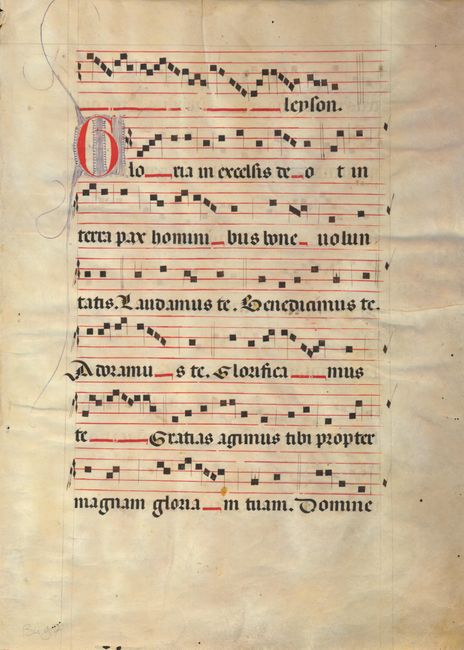 leyson.
Gloria in excelsis deo t in
terra pax hominibus bone uolun
tatis. Laudamus te. Benedicimus te.
Adoramus te. Glorificamus
te Gratias agimus tibi propter
magnam gloriam tuam. Domine